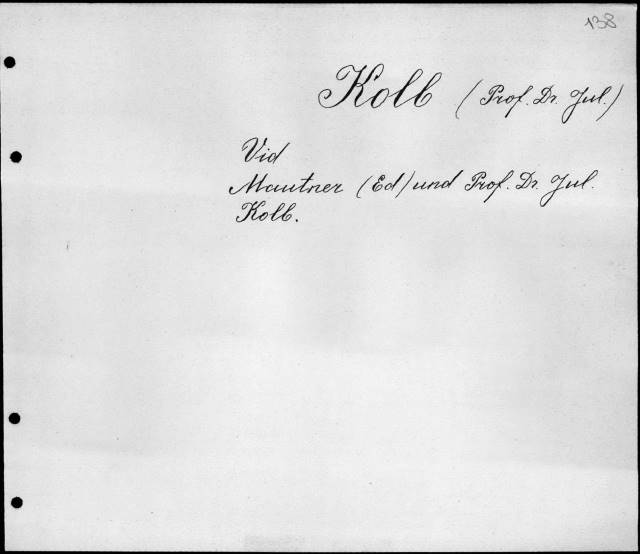 138
Kolb (Prof. Dr. Jul.)
Vid
Mautner (Ed) und Prof. Dr. Jul.
Kolb.